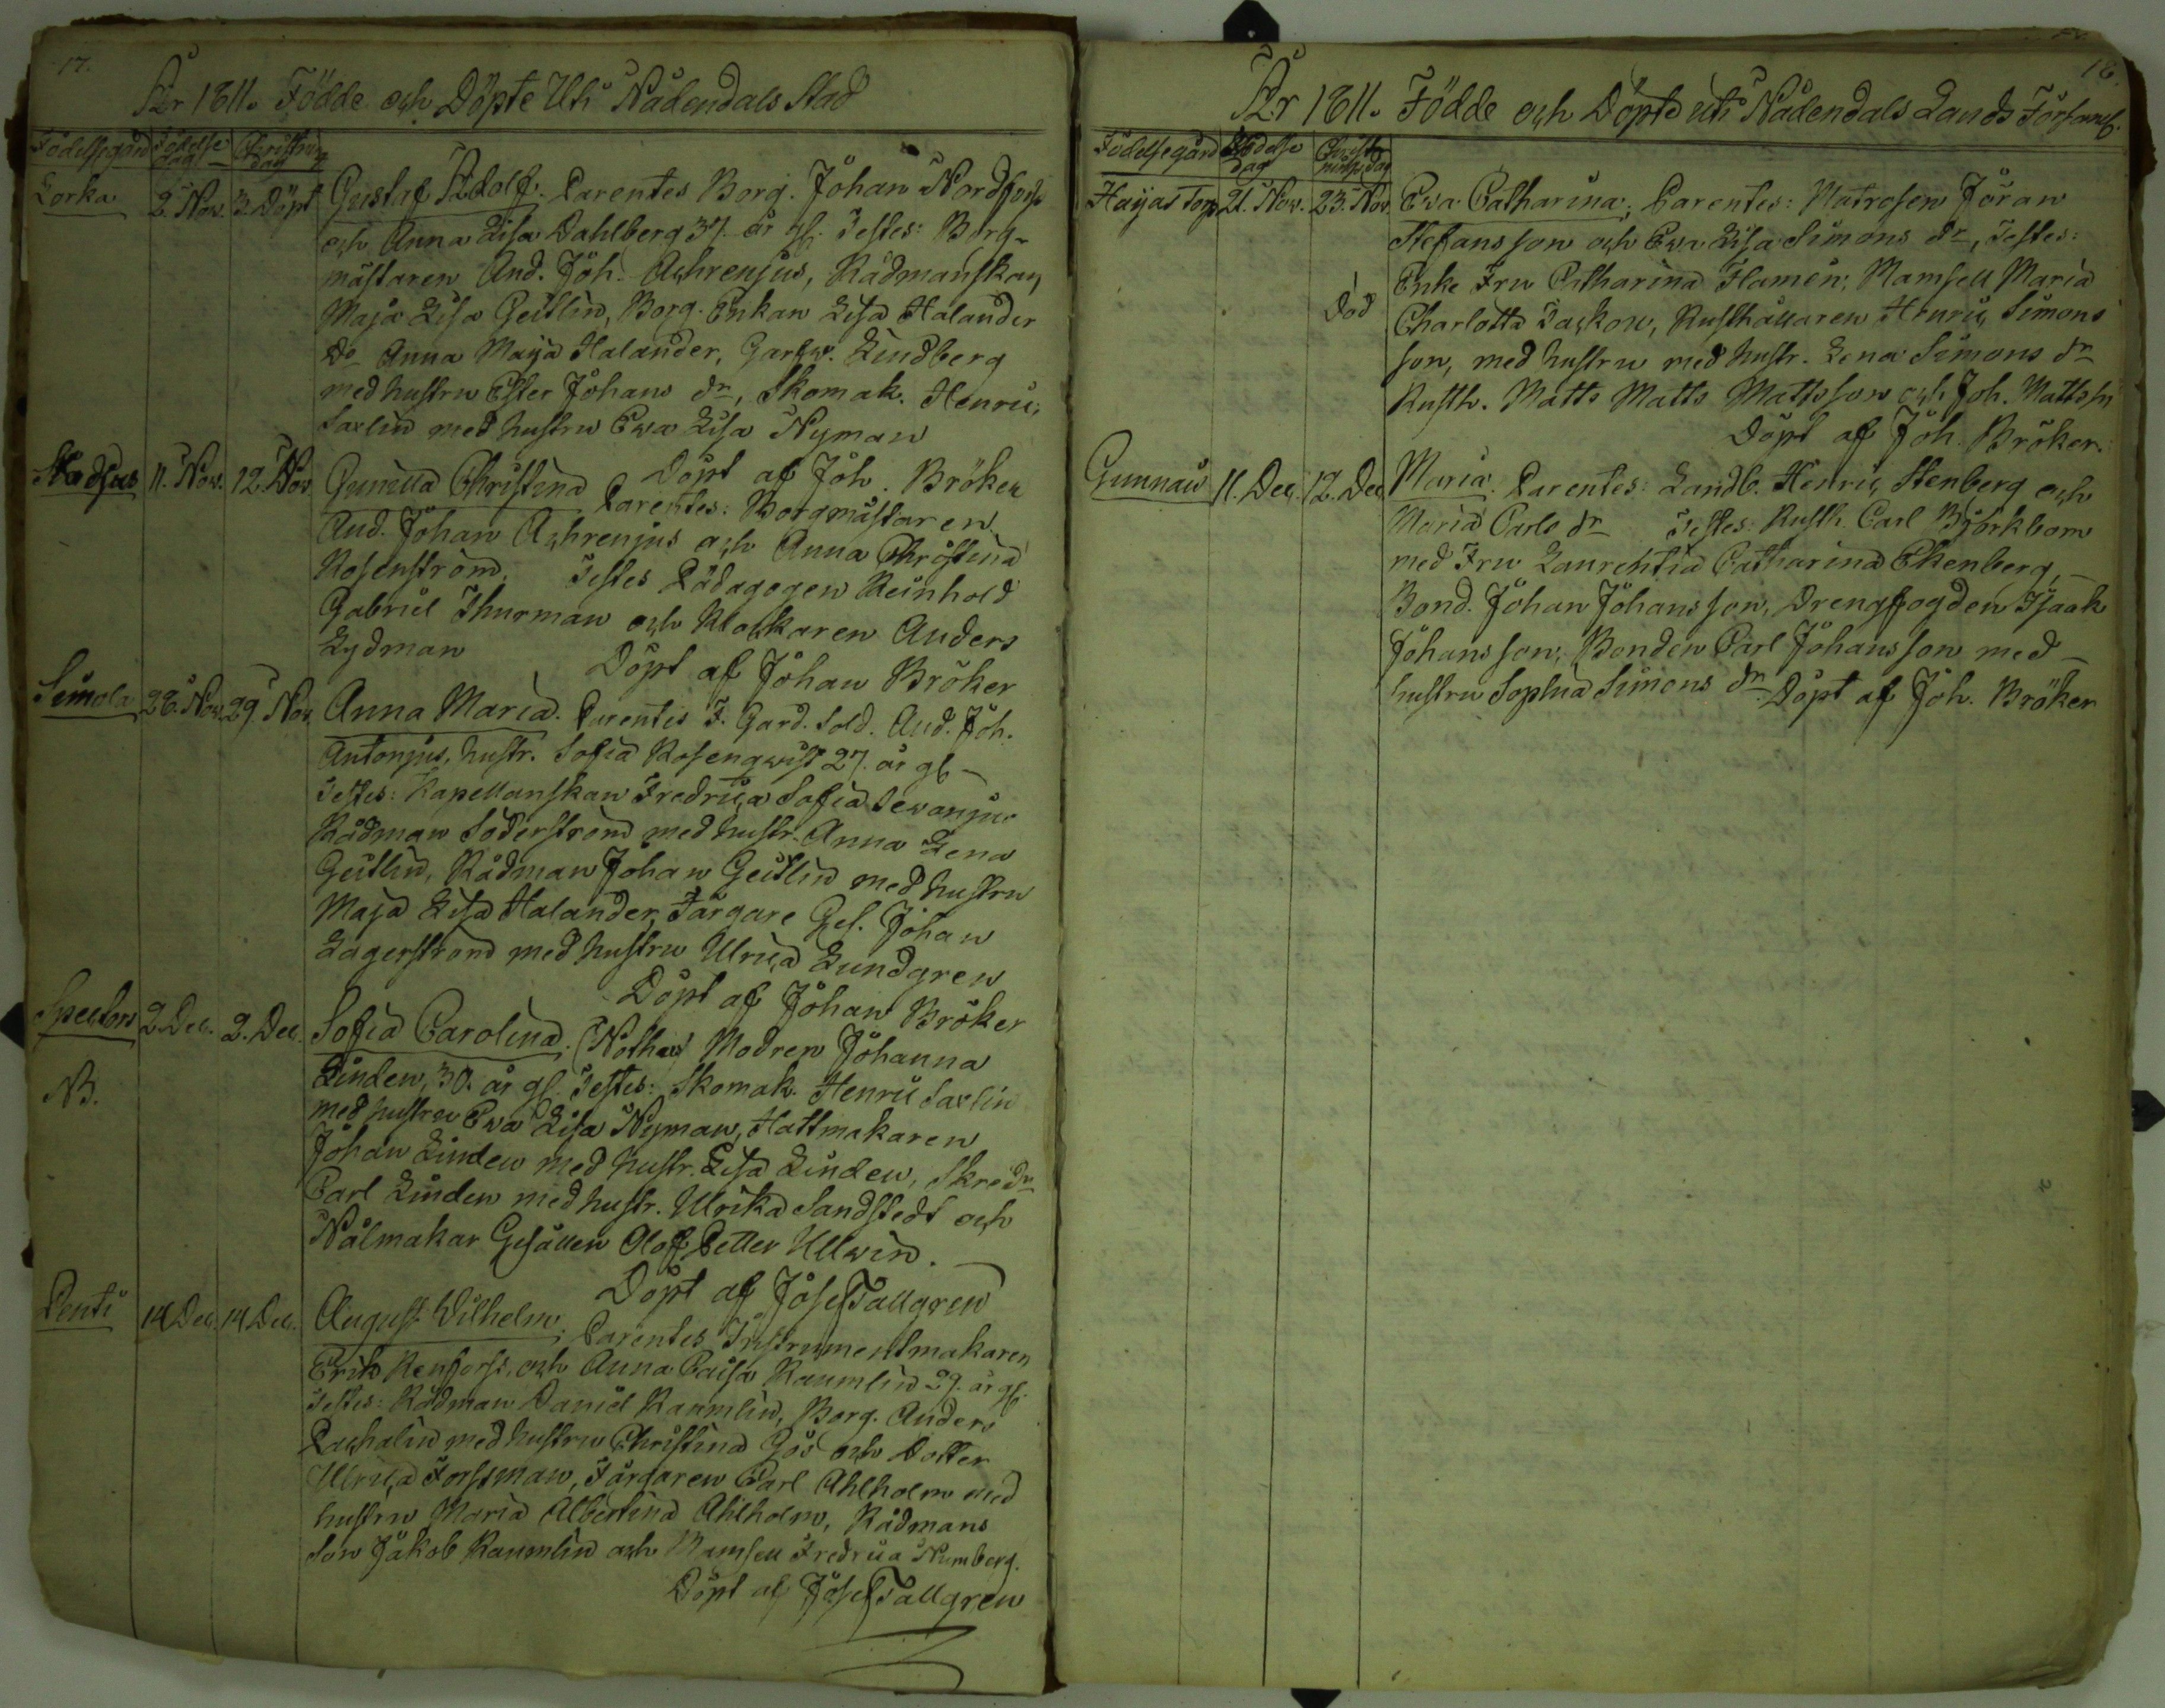 17.
År 1811. Födde och Döpte Uti Nådendals Stad
Födelsegård Födelse dag Christning dag
Lorka 2. Nov. 3. Döpt Gustaf Adolf. Parentes Borg. Johan Nordfors
och Anna Lisa Dahlberg 37. år gl. Testes: Borg-
mästaren And. Joh. Achrenius, Rådmanskan
Maja Lisa Geitlin, Borg. Enkan Lisa Halander
Do Anna Maija Halander, Garfv. Lindberg
med hustru Ester Johans dr, Skomak. Henric
Saxlin med hustru Ewa Lisa Nyman
Döpt af Joh. Bröker
11. Nov. 12. Nov Gunilla Christina Parentes: Borgmästaren
And. Johan Achrenius och Anna Christina
Rosenström, Testes Pädagogen Reinhold
Gabriel Thurman och Klockaren Anders
Lydman
Döpt af Johan Bröker
Simola 28. Nov. 29. Nov. Anna Maria. Parentes F. Gard. Sold. And. Joh.
Antonjus, hustr. Sofia Rosenqwist 27. år gl
Testes: Kapellanskan Fredrica Sofia
Rådman Söderström med hustr. Anna Lena
Geitlin, Rådman Johan Geitlin med hustru
Maja Lisa Halander, Färgare Ges. Johan
Lagerström med hustru Ulrica Lundgren
Döpt af Johan Bröker
Spectors 2. Dec. 2. Dec. Sofia Carolina. (Notha) Modren Johanna
NB.
Linden, 30. år gl. Testes: Skomak. Henric Saxlin
med hustru Ewa Lisa Nyman, Hattmakaren
Johan Linden med hustr. Lisa Linden, Skredr
Carl Linden med hustr. Ulrika Sandstedt och
Nålmakar Gesällen Olof Petter Ullwin.
Döpt af Josef Tallgren
Penti 14 Dec. 14 Dec. August Wilhelm. Parentes Instrumentmakaren
Erik Renfors, och Anna Caisa Raumlin 29. år gl.
Testes: Rådman Daniel Raumlin, Borg. Anders
Pachalin med hustru Christina Gös och Dotter
Ulrica Forssman, Färgaren Carl Ahlholm med
hustru Maria Albertina Ahlholm, Rådmans
Son Jakob Raumlin och Mamsell Fredrica Numberg.
Döpt af Josef Tallgren
18.
År 1811. Födde och Döpte uti Nådendals Lands Församl.
Födelsegård Födelse dag Christnings dag
Haijas Torp 21. Nov. 23. Nov. Ewa Catharina; Parentes: Matrosen Jöran
Stefansson och Ewa Lisa Simons dr, Testes:
Enke Fru Catharina Flamèn; Mamsell Maria
Död
Charlotta Packow, Rusthållaren Henric Simons
son, med hustru med hustr. Lena Simons dr
Rusth. Matts Matts Mattsson och Joh. Mattsson
Döpt af Joh. Bröker.
Gunnais 11. Dec. 12. Dec Maria. Parentes: Landb. Henric Stenberg och
Maria Carls dr Testes: Rusth. Carl Björkbom
med Fru Laurentia Catharina Ekenberg,
Bond. Johan Johansson, Drengfogden Isaak
Johansson, Bonden Carl Johansson med
hustru Sophia Simons dr Döpt af Joh. Bröker